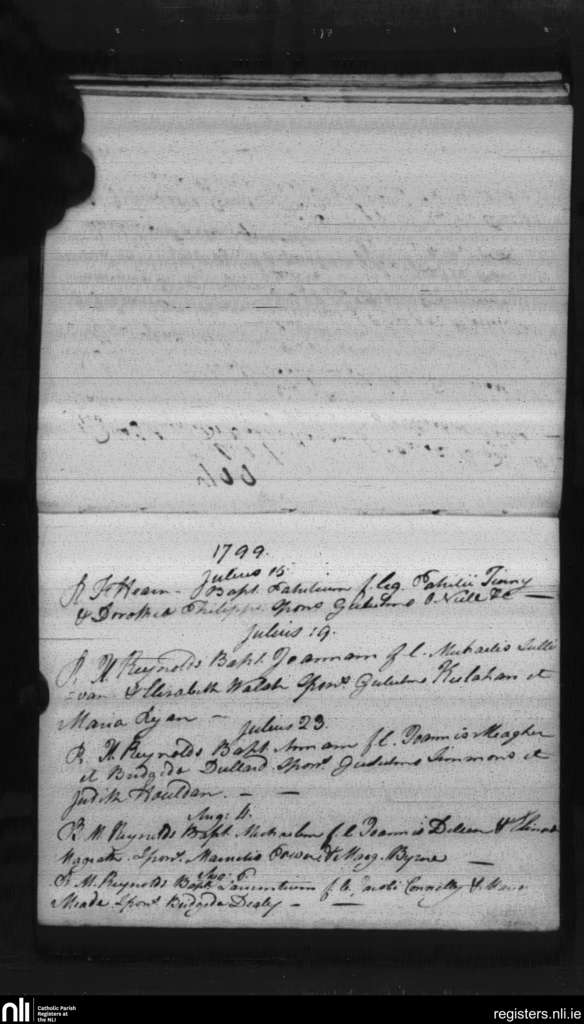 1799.
Julius 15.
R F Hearn - Bapt. Patritium f. leg. Patritii Tinny
& Dorothea Philipps Spons Gulielmo O Niell &c —
Julius 19.
R. M. Reynolds Bapt. Joannam f l. Michaelis Sulli
=van & Elisabeth Walsh Spons. Gulielmo Keelahan et
Maria Ryan —
Julius 23.
R. M. Reynolds Bapt. Annam f l. Joannis Meagher
et Bridgida Dullard. Spons. Gulielmo Simmons et
Judith Houldan. — —
Aug: 4.
R. M. Reynolds Bapt. Michaelem f l Joannis &
Magrath. Spons. Power & Marg. Byrne —
Aug:
R. M. Reynolds Bapt. Laurentium f l. Jacobi Connelly &
Meade. Spons. Bridgida Dealy — —
nli
Catholic Parish
Registers at
the NLI
registers.nli.ie